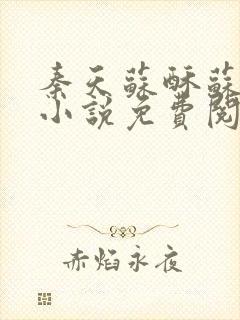 秦天蘇酥蘇
小說免費閱
赤焰永夜